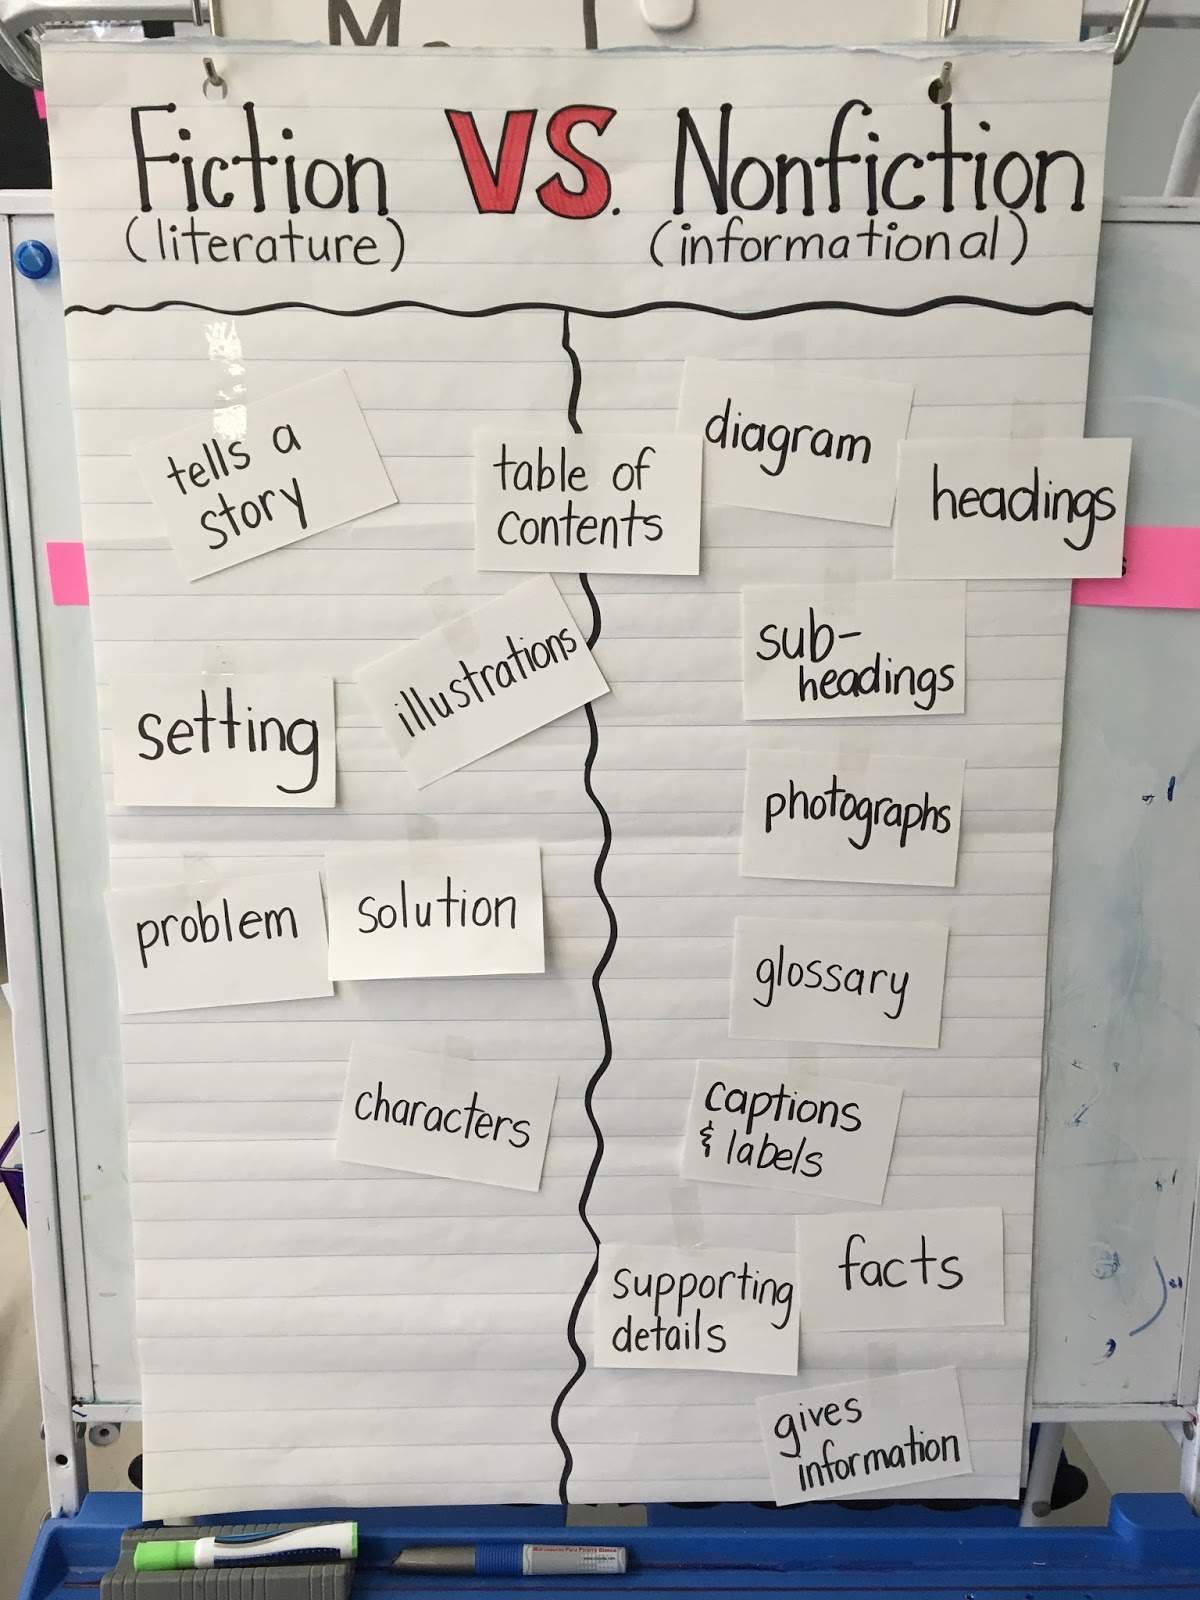 Fiction VS. Nonfiction
(literature)
(informational)
tells a
story
table of
contents
diagram
headings
illustrations
sub-
headings
setting
photographs
problem
solution
glossary
characters
captions
& labels
supporting
details
facts
gives
information